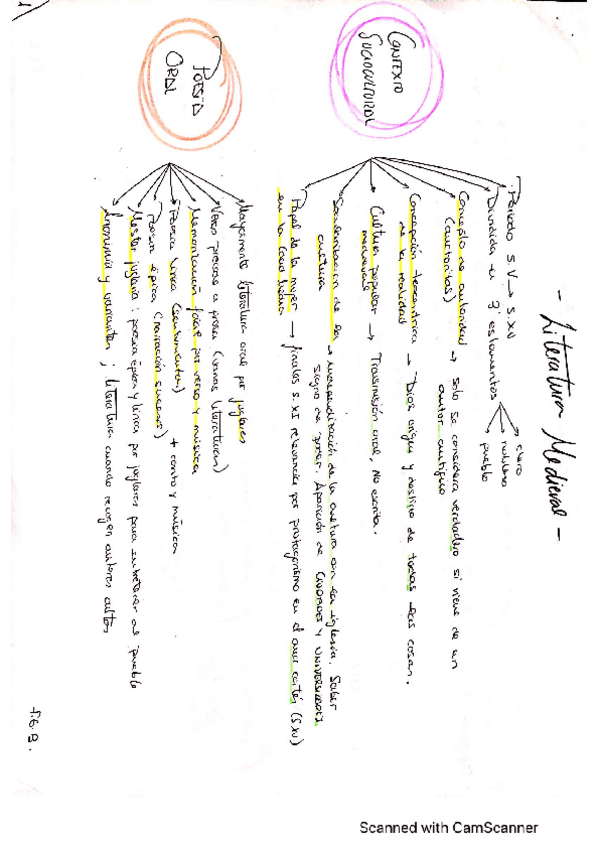 - Literatura Medieval -
CONTEXTO
SOCIOCULTURAL
Periodo S.V → S.XV
Dividida en 3 estamentos
clero
nobleza
pueblo
Concepto de autoridad → solo se considera verdadero si viene de un
(auctoritas) autor antiguo
Concepción teocéntrica → Dios origen y destino de todas las cosas.
de la realidad
Cultura popular → Transmisión oral, No escrita.
medieval
Secularización de la → independización de la cultura con la iglesia. Saber
cultura signo de poder. Aparición de CIUDADES Y UNIVERSIDADES.
Papel de la mujer → finales S.XI relevancia por protagonismo en el amor cortés (S.XV)
en la Edad Media
POESÍA
ORAL
Mayormente literatura oral por juglares
Verso precede a prosa (unas literaturas)
Memorización fácil por verso y música
Poesía lírica (sentimientos)
+ canto y música
Poesía épica (narración sucesos)
Mester juglaría: poesía épica y lírica por juglares para entretener al pueblo
Anonimia y variantes; literatura cuando recogen autores cultos
f.G.B.
Scanned with CamScanner